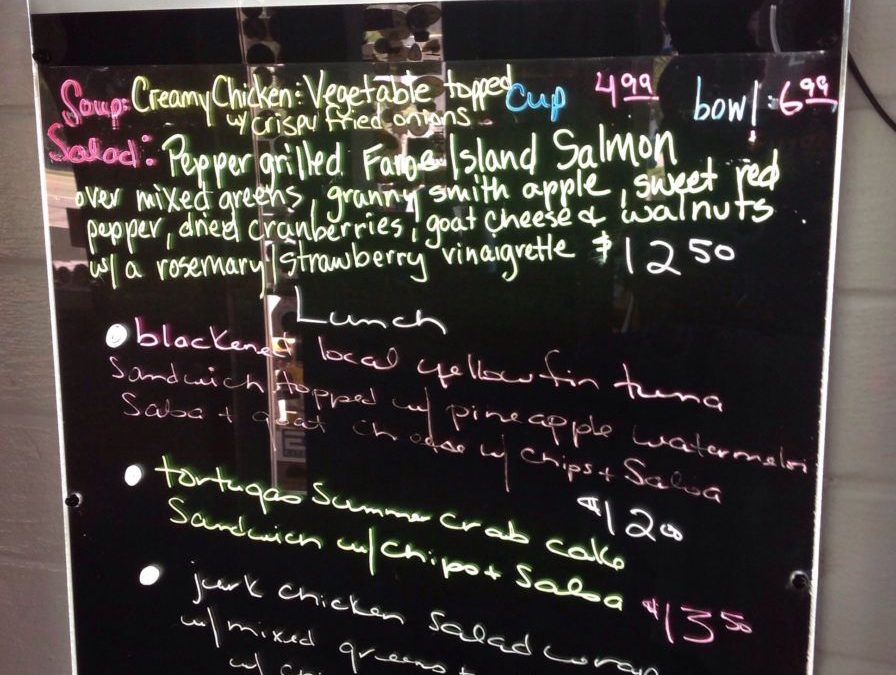 Soup: Creamy Chicken: Vegetable topped Cup 4.99 bowl: 6.99
w/ crispy fried onions
Salad: Pepper grilled Faroe Island Salmon
over mixed greens, granny smith apple, sweet red
pepper, dried cranberries, goat cheese & walnuts
w/ a rosemary/strawberry vinaigrette $12 50
Lunch
blackened local yellowfin tuna
Sandwich topped w/ pineapple watermelon
Salsa + goat cheese w/ chips + Salsa
$12 00
tortugas Summer crab cake
Sandwich w/ chips + Salsa
$13 50
jerk chicken Salad wrap
w/ mixed greens +
w/